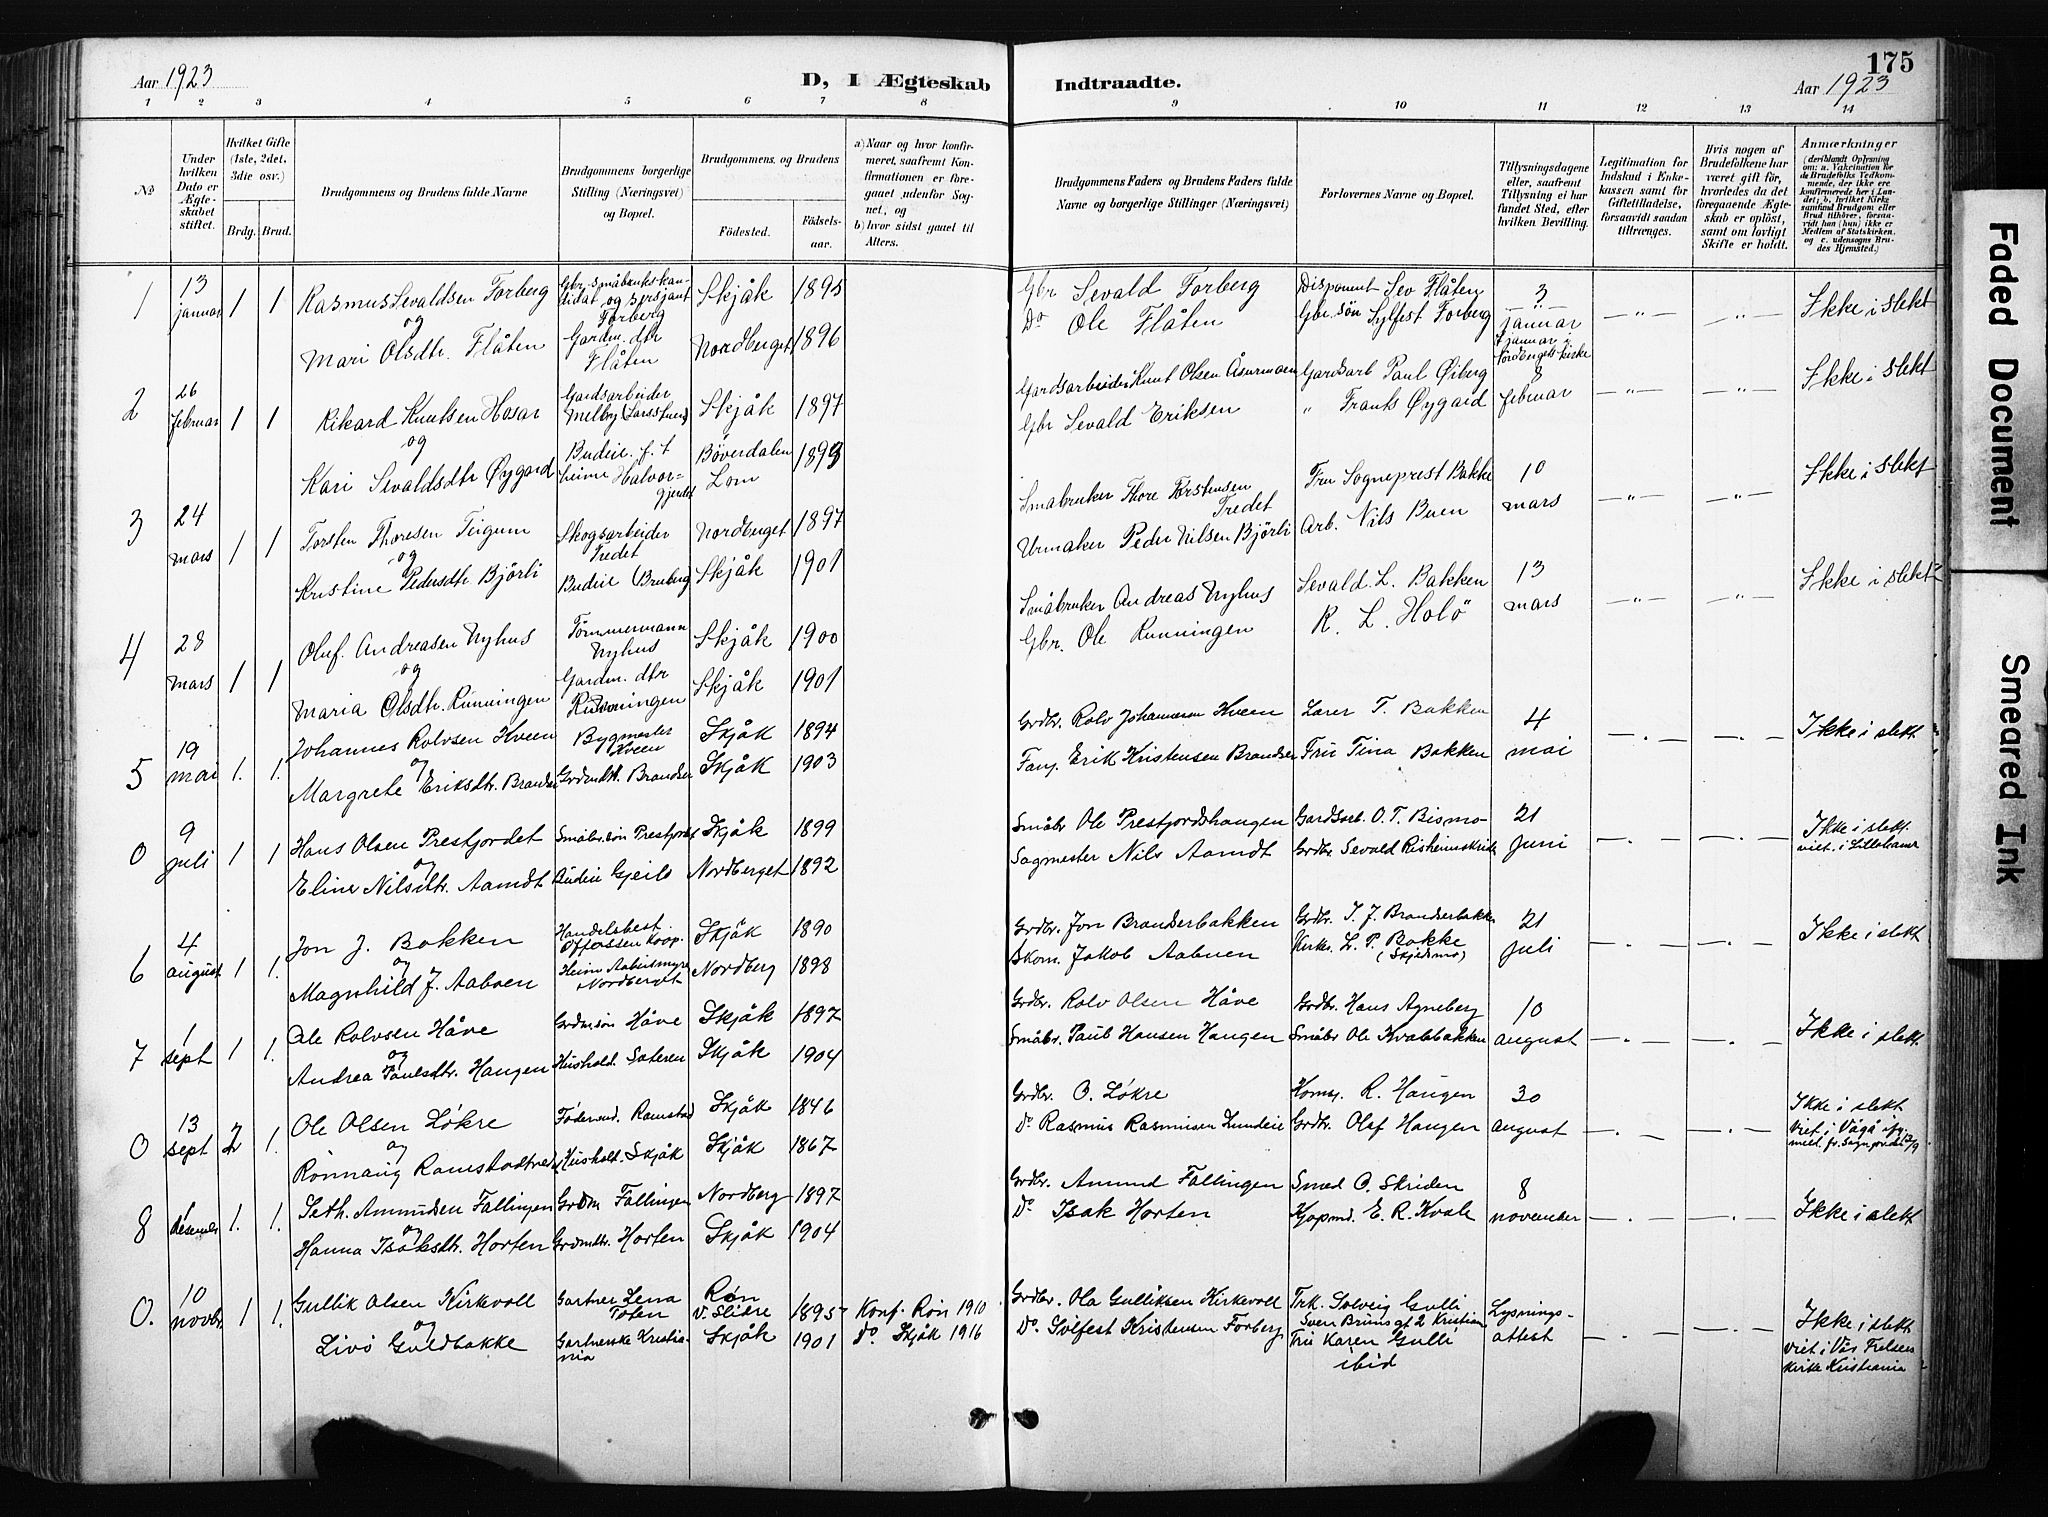 175
Aar 1923
D, I Ægteskab Indtraadte.
Aar 1923
1 2 3 4 5 6 7 8 9 10 11 12 13 14
No
Under hvilken Dato er Ægteskabet stiftet.
Hvilket Gifte (1ste, 2det, 3die osv.)
Brdg. Brud.
Brudgommens og Brudens fulde Navne
Brudgommens borgerlige Stilling (Næringsvei) og Bopæl.
Brudgommens og Brudens
Födested. Födselsaar.
a) Naar og hvor konfirmeret, saafremt Konfirmationen er foregaaet udenfor Sognet, og
b) hvor sidst gaaet til Alters.
Brudgommens Faders og Brudens Faders fulde Navne og borgerlige Stillinger (Næringsvei)
Forlovernes Navne og Bopæl.
Tillysningsdagene eller, saafremt Tillysning ei har fundet Sted, efter hvilken Bevilling.
Legitimation for Indskud i Enkekassen samt for Giftetilladelse, forsaavidt saadan tiltrænges.
Hvis nogen af Brudefolkene har været gift før, hvorledes da det foregaaende Ægteskab er opløst, samt om lovligt Skifte er holdt.
Anmærkninger
(deriblandt Oplysning om: a. Vakcination for de Brudefolks Vedkommende, der ikke ere konfirmerede her i Landet; b. hvilket Kirkesamfund Brudgom eller Brud tilhörer, forsaavidt han (hun) ikke er Medlem af Statskirken, og c. udensogns Brudes Hjemsted.)
1 13 januar 1 1 Rasmus Sevaldsen Forberg Gbr. småbrukskandidat og sersjant Forberg Skjåk 1895 Gbr Sevald Forberg Disponent Sev Flåten 3 januar —"— —"— Ikke i slekt
og
Mari Olsdtr. Flåten Gardm. dtr Flåten Nordberget 1896 Do Ole Flåten Gbr. søn Sylfest Forberg januar i Nordbergets kirke
2 26 februar 1 1 Rikard Knutsen Hosar Gardsarbeider Melby Skjåk 1897 Gardsarbeider Knut Olsen Gardsarb Paul Øiberg 8 februar —"— —"— Ikke i slekt
og
Kari Sevaldsdtr Øygard Budeie f. t heime Halvorgjerdet Böverdalen Lom 1893 Gbr Sevald Eriksen " Frants Øygard
3 24 mars 1 1 Torsten Thoresen Teigum Skogsarbeider Tredet Nordberget 1897 Småbruker Thore Torstensen Tredet Fru Sogneprest Bakke 10 mars —"— —"— Ikke i slekt
og
Kristine Pedersdtr Björli Budeie Bruberg Skjåk 1901 Urmaker Peder Nilsen Björli Arb. Nils Buen
4 28 mars 1 1 Oluf Andreasen Nyhus Tömmermann Nyhus Skjåk 1900 Småbruker Andreas Nyhus Sevald L. Bakken 13 mars —"— —"— Ikke i slekt
og
Maria Olsdtr. Runningen Gardm. dtr Runningen Skjåk 1901 Gbr. Ole Runningen R. L. Holö
5 19 mai 1. 1. Johannes Rolvsen Kveen Bygmester Kveen Skjåk 1894 Grdbr. Rolv Johannesen Kveen Lærer T. Bakken 4 mai —.— —.— Ikke i slekt
og
Margrete Eriksdtr. Brandser Grdmdt. Brandser Skjåk 1903 Erik Kristensen Brandser Fru Tina Bakken
0 9 juli 1 1 Hans Olsen Prestjordet Småbr.søn Prestjordet Skjåk 1899 Småbr Ole Prestjordshaugen Gardsarb. O. T. Bismo 21 juni —.— —.— Ikke i slekt. viet i Lillehamar
og
Eline Nilsdtr. Aamdt Budeie Gjeilo Nordberget 1892 Sagmester Nils Aamdt Grdbr Sevald Risheimskride
6 4 august 1 1. Jon J. Bakken Handelsbest. Ottadalen Koop. Skjåk 1890 Grdbr. Jon Brandserbakken Grdbr. J. J. Brandserbakke 21 juli —.— —.— Ikke i slekt
og
Magnhild J. Aabuen Heime Nordberget Nordberg 1898 Skom. Jakob Aabuen Kirkes. L. P. Bakke (Skjedsmo)
7 1 sept 1 1. Ole Rolvsen Håve Grdmsön Håve Skjåk 1897 Grdbr. Rolv Olsen Håve Grdbr. Hans Agneberg 10 august —.— —.— Ikke i slekt.
og
Andrea Paulsdtr. Haugen Hushold. Sæteren Skjåk 1904 Småbr. Paul Hansen Haugen Småbr Ole Kvalebakken
0 13 sept 2 1. Ole Olsen Løkre Föderaad. Ramstad Skjåk 1846 Grdbr. O. Løkre R. Haugen 30 august —.— —.— Ikke i slekt Viet i Vågå
og
Rønnaug Ramstad Hushold. Skjåk Skjåk 1867 Do Rasmus Rasmusen Lundeie Grdbr. Olaf Haugen
8 1 desember 1. 1. Seth. Amundsen Fallingen Grdbm Fallingen Nordberg 1897 Grdbr. Amund Fallingen Smed O. Skriden 8 november —.— —.— Ikke i slekt
og
Hanna Isaksdtr. Horten Grdmdtr. Horten Skjåk 1904 Do Isak Horten Kjøpmd. E. R. Kvale
0. 10 novbr. 1 1. Gullik Olsen Kirkevoll Gartner Lena Toten Røn V. Slidre 1895 Konf. Røn 1910. Grdbr. Ola Gulliksen Kirkevoll Frk. Solveig Gulli Sven Brunsgt 2 Kristiania Lysningsattest —.— —.— Ikke i slekt viet i Vår Frelsers kirke Kristiania
og
Livø Guldbakke Gartnerske Kristiania Skjåk 1901 Do. Skjåk 1916 Do. Sylfest Kristensen Forberg Fru Karen Gulli ibid
Faded Document
Smeared Ink